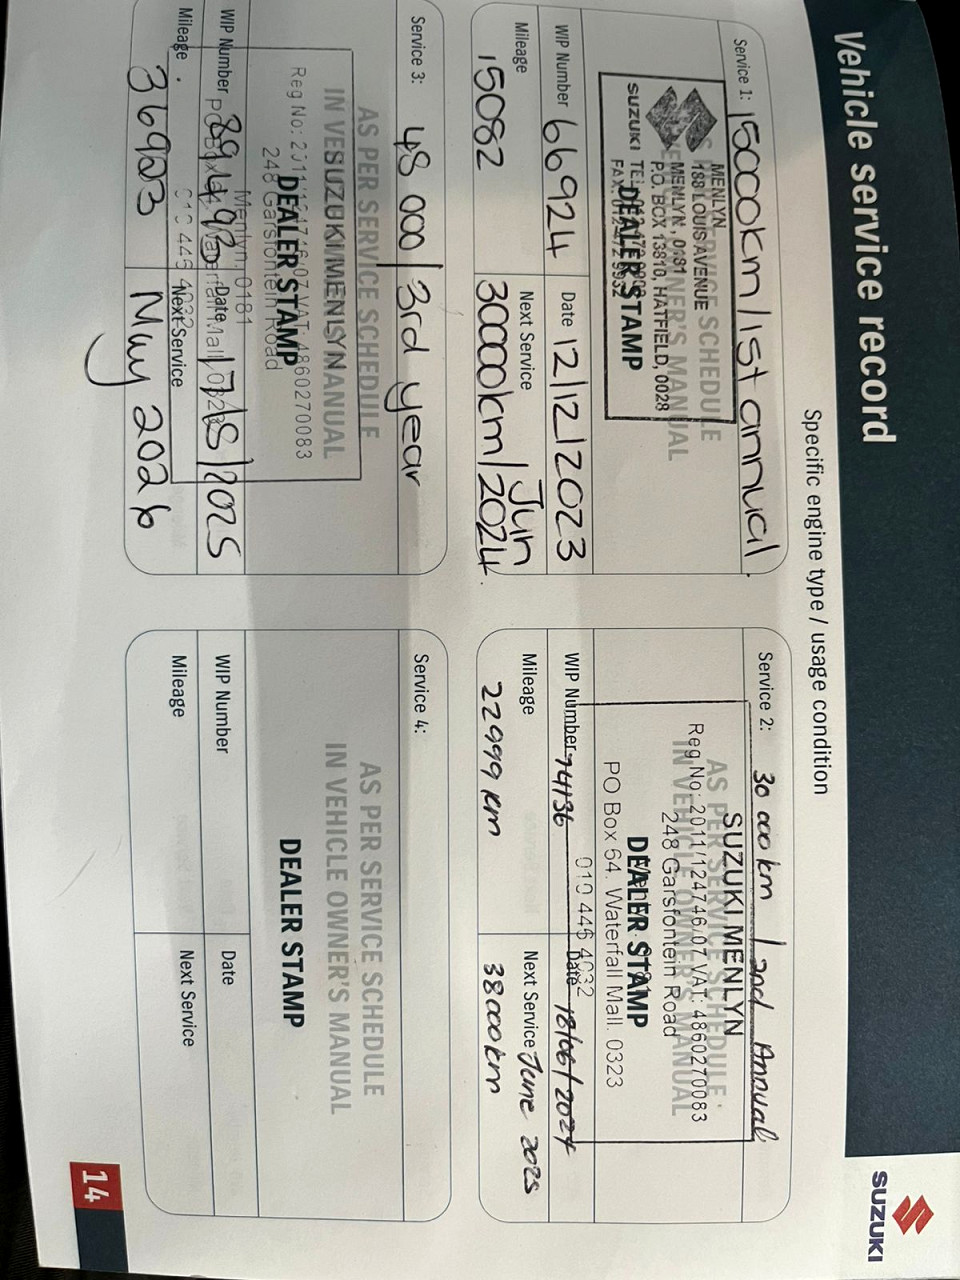 Vehicle service record
SUZUKI
Specific engine type / usage condition
Service 1: 15000km/1st annual
AS PER SERVICE SCHEDULE
IN VEHICLE OWNER'S MANUAL
DEALER STAMP
MENLYN
188 LOUIS AVENUE
MENLYN, 0181
P.O. BOX 13810, HATFIELD, 0028
SUZUKI
WIP Number 66924
Date 12/12/2023
Mileage 15082
Next Service Jun
30000km/2024.
Service 2: 30 000 km / 2nd Annual
AS PER SERVICE SCHEDULE
IN VEHICLE OWNER'S MANUAL
DEALER STAMP
SUZUKI MENLYN
Reg No: 2011/124746/07 VAT: 4860270083
248 Garsfontein Road
PO Box 64. Waterfall Mall. 0323
010 446 4032
WIP Number 74136
Date 18/06/2024
Mileage 22999 km
Next Service June 2025
38000km
Service 3: 45 000/3rd year
AS PER SERVICE SCHEDULE
IN VEHICLE OWNER'S MANUAL
DEALER STAMP
SUZUKI MENLYN
Reg No: 2011/124746/07 VAT: 4860270083
248 Garsfontein Road
Menlyn. 0181
WIP Number
Date
Mileage 36903
Next Service May 2026
Service 4:
AS PER SERVICE SCHEDULE
IN VEHICLE OWNER'S MANUAL
DEALER STAMP
WIP Number
Date
Mileage
Next Service
14